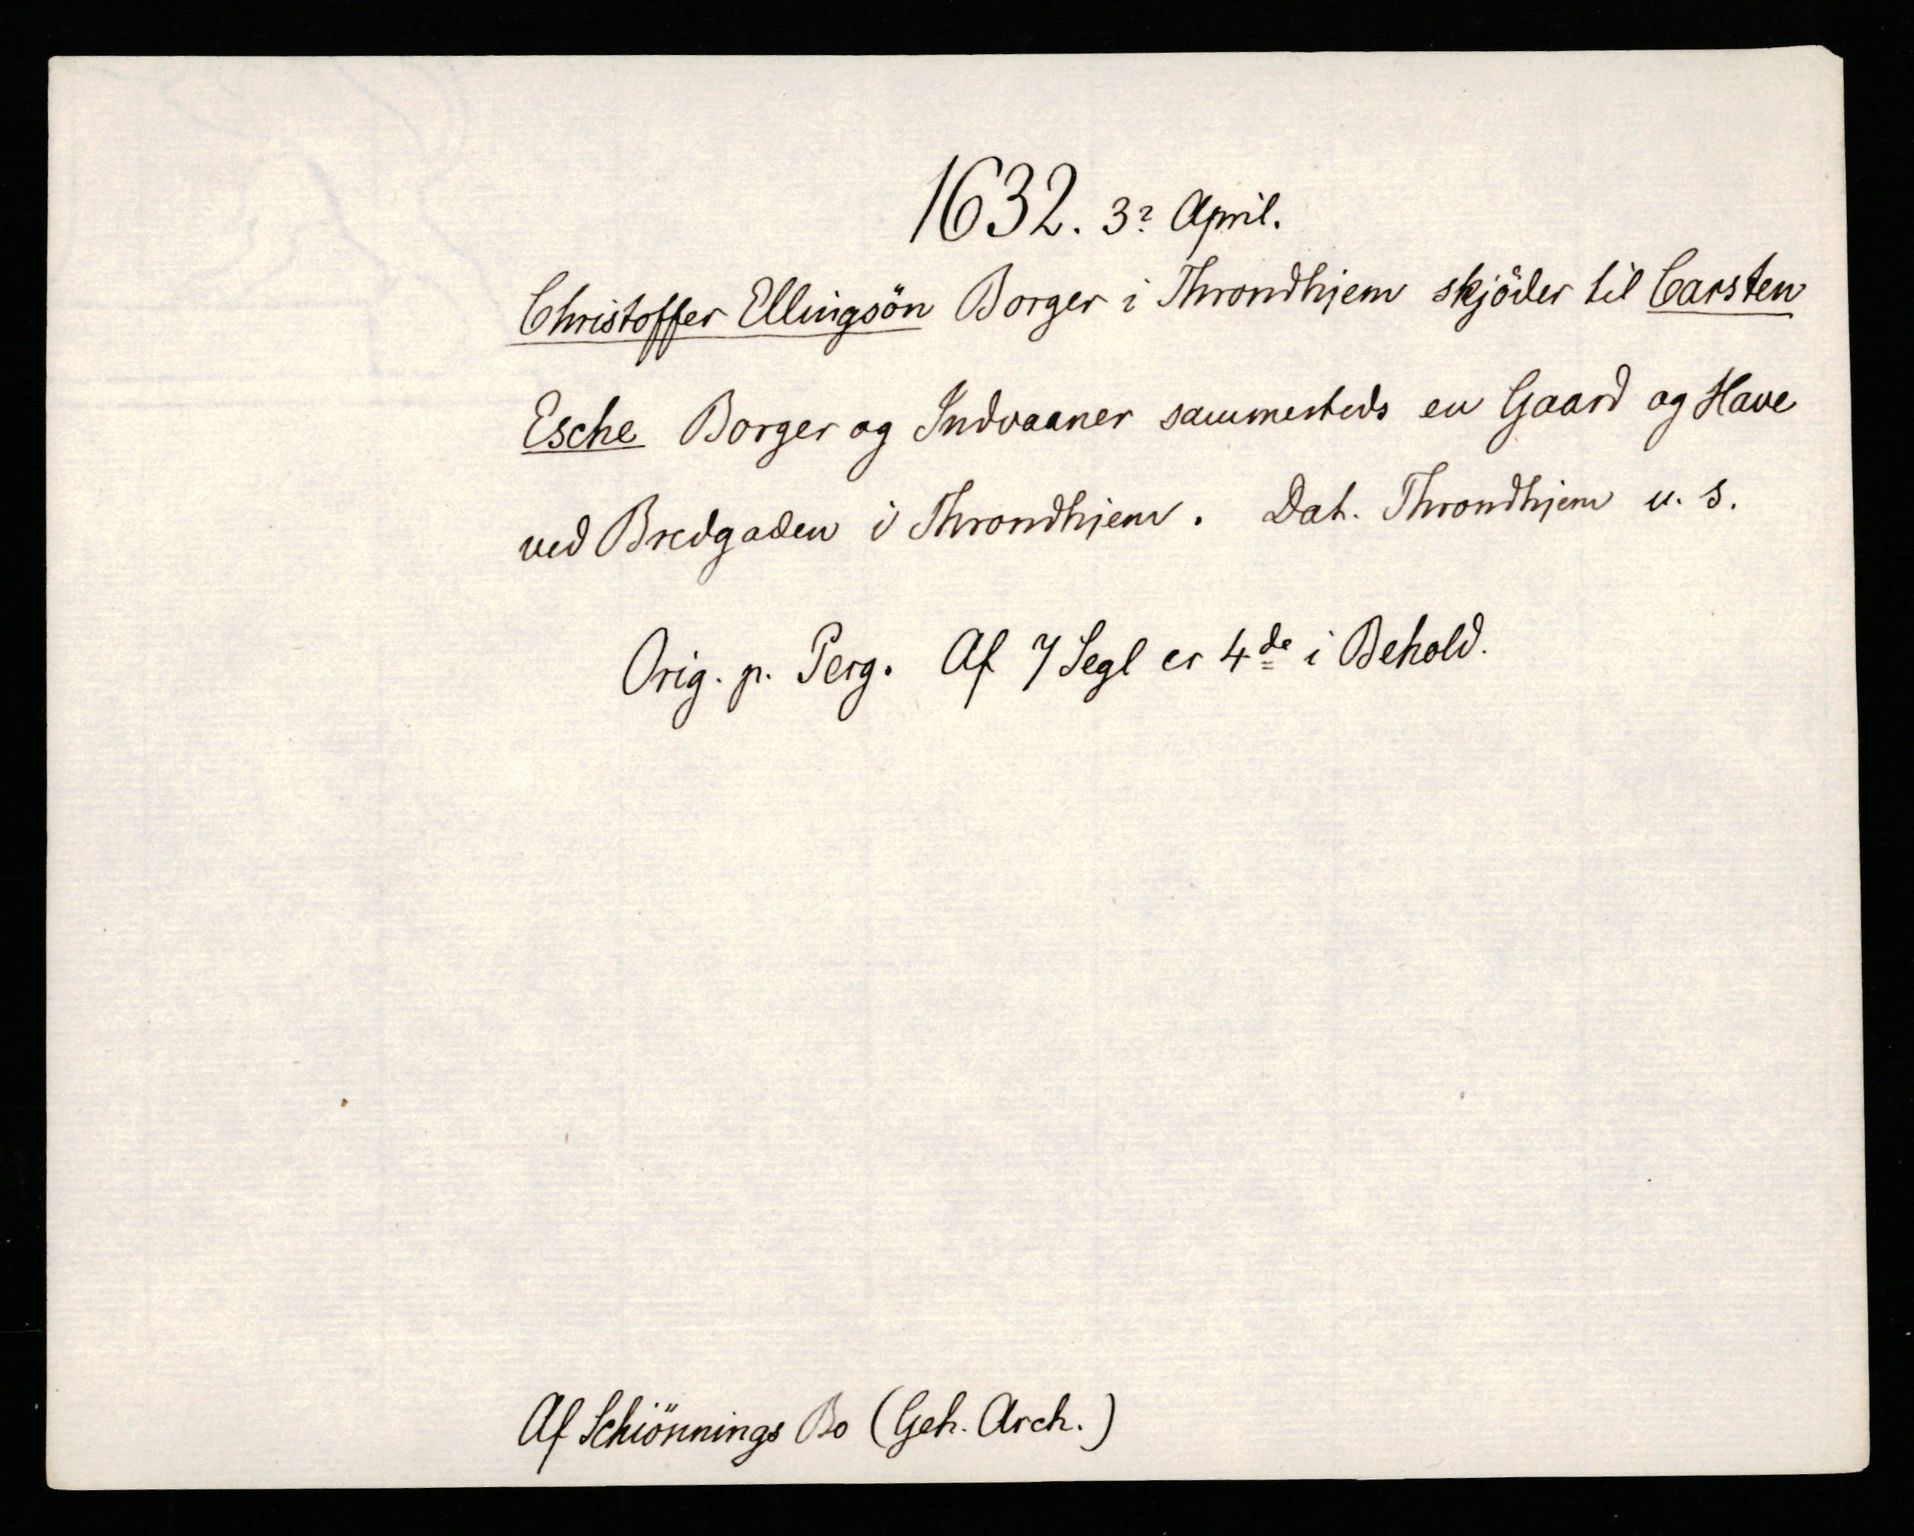 1632. 3? April.
Christoffer Ellingsön Borger i Throndhjem skjöder til Carsten
Esche Borger og Indvaaner sammesteds en Gaard og Have
ved Bredgaden i Throndhjem. Dat. Throndhjem u. s.
Orig. p. Perg. Af 7 Segl er 4de i Behold.
Af Schiönnings Bo (Geh. Arch.)